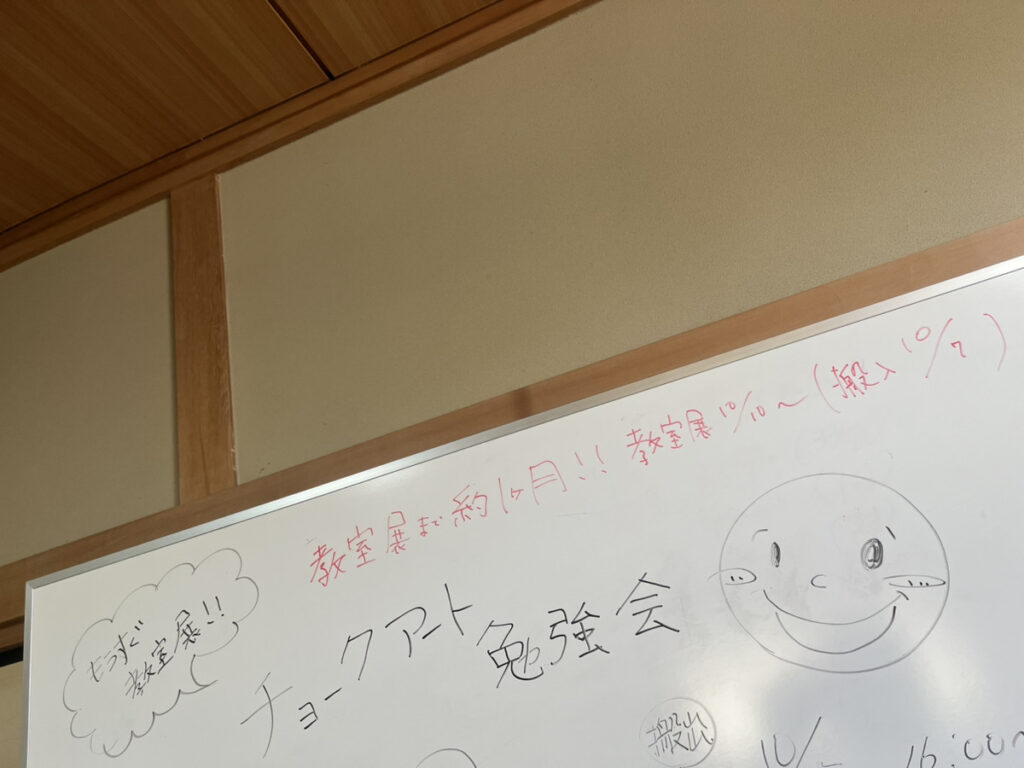 教室展まで約1ヶ月!! 教室展10/10〜(搬入10/7)
もうすぐ
教室展!!
チョークアート勉強会
搬出 10/ 16:00〜